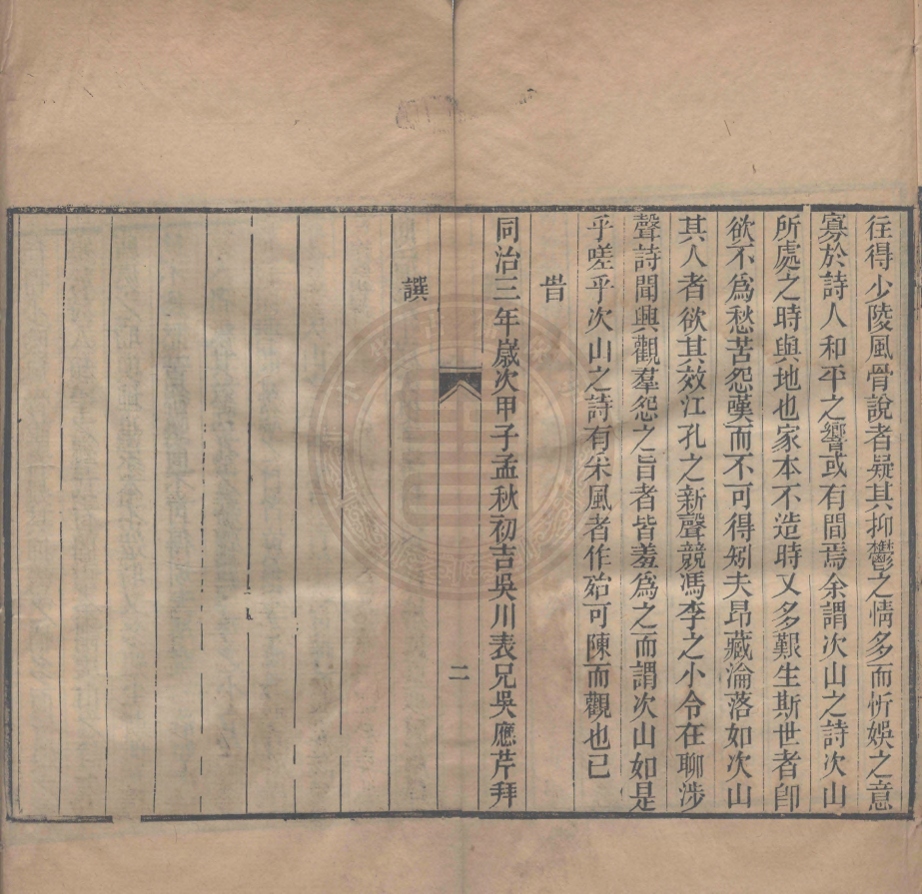 往得少陵風骨說者疑其抑鬱之情多而忻娛之意
寡於詩人和平之響或有間焉余謂次山之詩次山
所處之時與地也家本不造時又多艱生斯世者卽
欲不爲愁苦怨嘆而不可得矧夫昂藏淪落如次山
其人者欲其效江孔之新聲競馮李之小令在聊涉
聲詩聞興觀羣怨之旨者皆羞爲之而謂次山如是
乎嗟乎次山之詩有采風者作始可陳而觀也已
旹
同治三年歲次甲子孟秋初吉吳川表兄吳應芹拜
二
譔